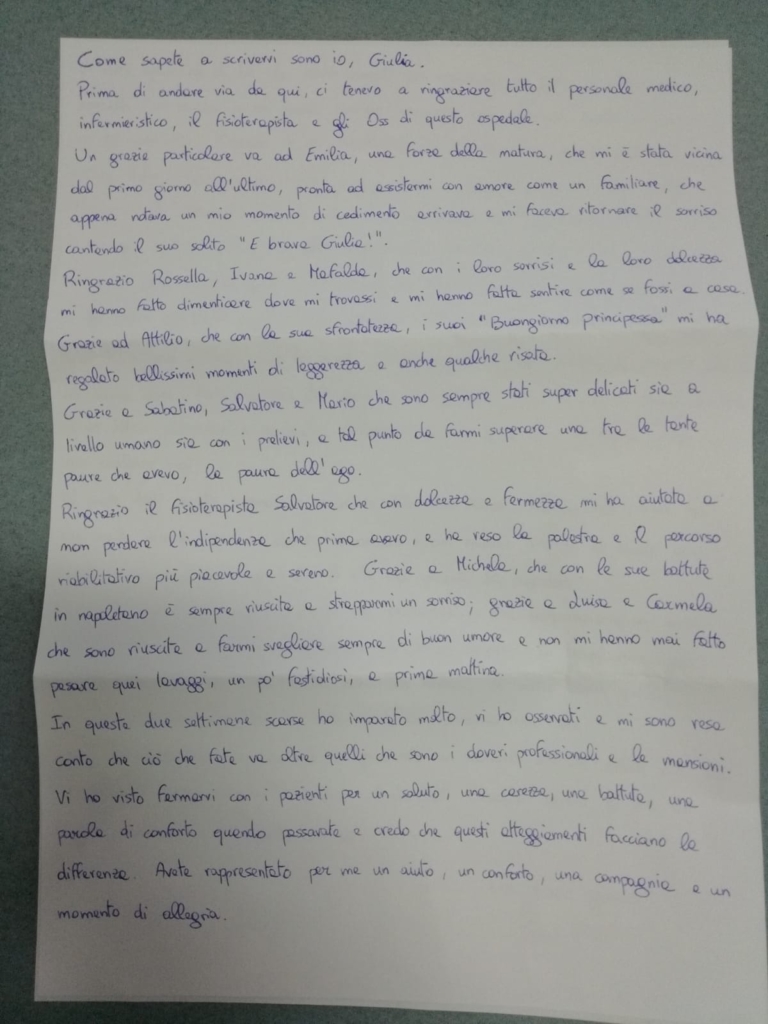 Come sapete a scrivervi sono io, Giulia.
Prima di andare via da qui, ci tenevo a ringraziare tutto il personale medico,
infermieristico, il fisioterapista e gli Oss di questo ospedale.
Un grazie particolare va ad Emilia, una forza della natura, che mi è stata vicina
dal primo giorno all'ultimo, pronta ad assistermi con amore come un familiare, che
appena notava un mio momento di cedimento arrivava e mi faceva ritornare il sorriso
cantando il suo solito "E brava Giulia!".
Ringrazio Rossella, Ivana e Mafalda, che con i loro sorrisi e la loro dolcezza
mi hanno fatto dimenticare dove mi trovassi e mi hanno fatta sentire come se fossi a casa.
Grazie ad Attilio, che con la sua sfrontatezza, i suoi "Buongiorno principessa" mi ha
regalato bellissimi momenti di leggerezza e anche qualche risata.
Grazie a Sabatino, Salvatore e Mario che sono sempre stati super delicati sia a
livello umano sia con i prelievi, a tal punto da farmi superare una tra le tante
paure che avevo, la paura dell'ago.
Ringrazio il fisioterapista Salvatore che con dolcezza e fermezza mi ha aiutata a
non perdere l'indipendenza che prima avevo, e ha reso la palestra e il percorso
riabilitativo più piacevole e sereno. Grazie a Michela, che con le sue battute
in napoletano è sempre riuscita a strapparmi un sorriso; grazie a Luisa e Carmela
che sono riuscite a farmi svegliare sempre di buon umore e non mi hanno mai fatto
pesare quei lavaggi, un po' fastidiosi, a prima mattina.
In queste due settimane scarse ho imparato molto, vi ho osservati e mi sono resa
conto che ciò che fate va oltre quelli che sono i doveri professionali e le mansioni.
Vi ho visto fermarvi con i pazienti per un saluto, una carezza, una battuta, una
parola di conforto quando passavate e credo che questi atteggiamenti facciano la
differenza. Avete rappresentato per me un aiuto, un conforto, una compagnia e un
momento di allegria.